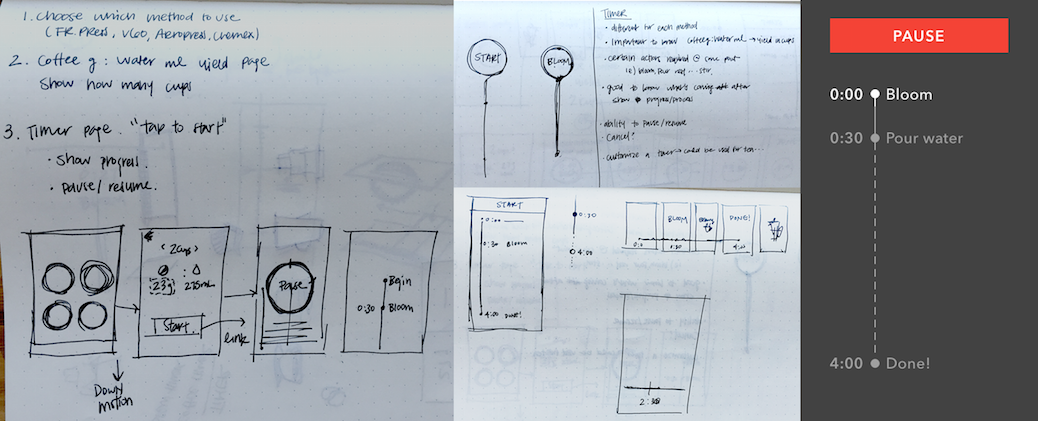 1. Choose which method to use
(FR.Press, V60, Aeropress, Chemex)
2. Coffee g : water ml yield page
Show how many cups
3. Timer page. "tap to start"
• Show progress.
• pause / resume.
< 2cups >
:
23g 275ml
Start
Pause
Begin
0:30 Bloom
link
Down
motion
START
BLOOM
Timer
• different for each method
• Important to know coffee g: water ml → yield a cups
• certain actions required @ some point
ie) bloom, pour, rest ... stir,
• good to know what's coming after
show progress/process
• ability to pause/resume
• Cancel?
• customize a timer → could be used for tea...
START
0:00
0:30 Bloom
4:00 DONE!
0:30
4:00
BLOOM
DONE!
0:0
0:30
4:00
2:30
PAUSE
0:00 Bloom
0:30 Pour water
4:00 Done!